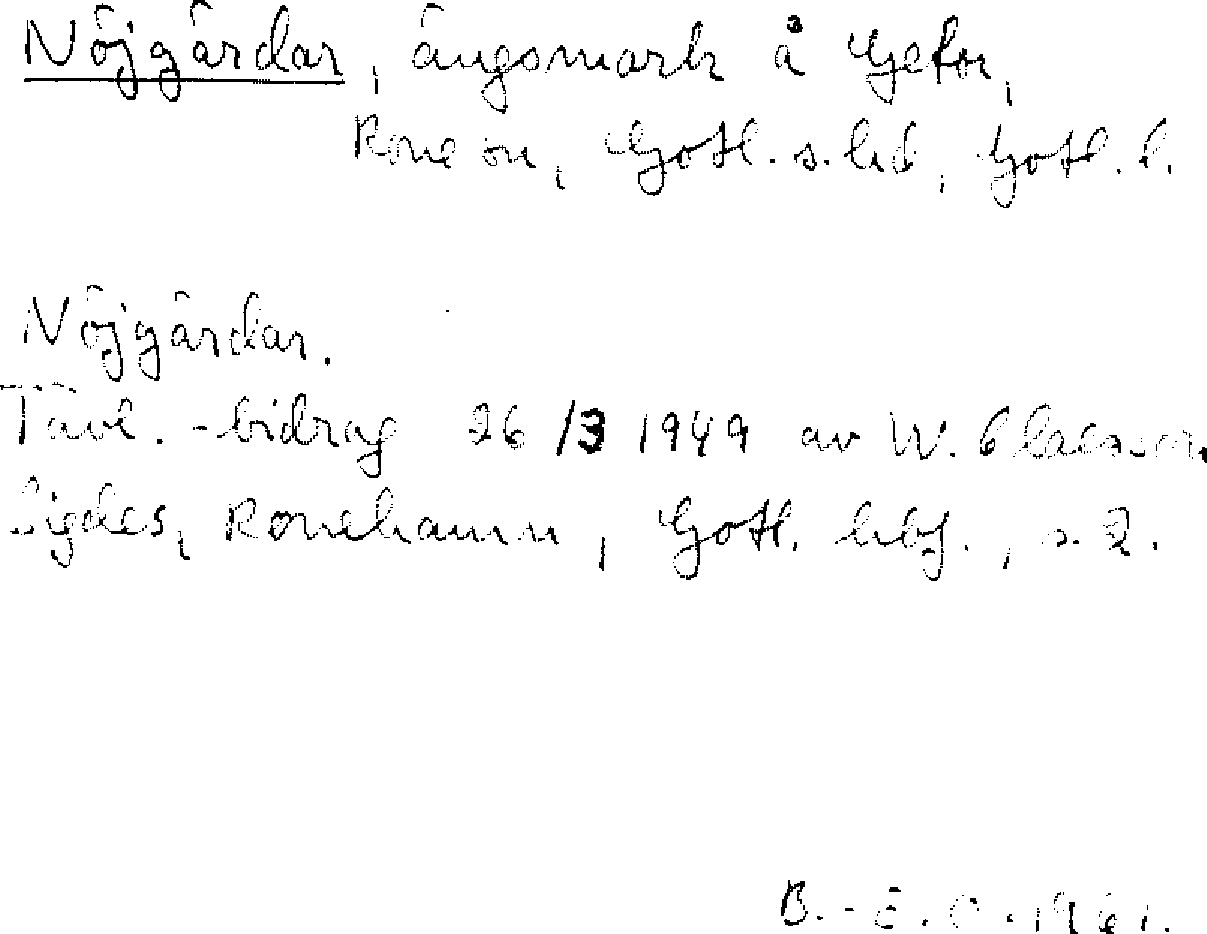 Nöjgårdar, ängsmark å Gefor,
Rone sn, Gotl. s. hd, Gotl. l.
Nöjgårdar.
Tävl. -bidrag 26/3 1949 av W. Claesson,
Sigdes, Ronehamn, Gotl. hbf., s. 2.
B.-E. O. 1961.